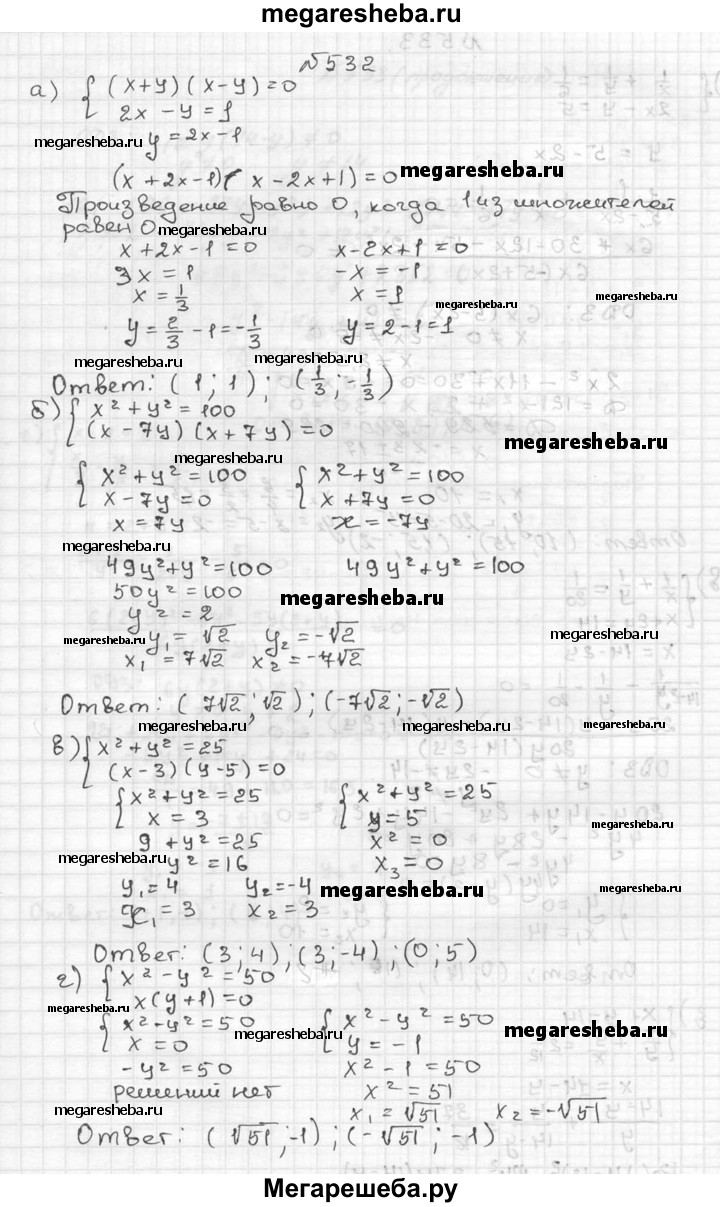 megaresheba.ru
№532
а) { (x+y)(x-y)=0
2x - y = 1
megaresheba.ru y = 2x-1
(x + 2x-1)(x-2x+1) = 0 megaresheba.ru
Произведение равно 0, когда 1 из множителей
равен 0 megaresheba.ru
x + 2x - 1 = 0 x-2x+1=0
3x = 1 -x = -1
x = 1/3 x = 1 megaresheba.ru megaresheba.ru
y = 2/3 - 1 = -1/3 y = 2-1 = 1
megaresheba.ru megaresheba.ru
Ответ: (1; 1); (1/3; -1/3)
б) { x² + y² = 100
(x - 7y)(x + 7y) = 0 megaresheba.ru
megaresheba.ru
{ x² + y² = 100 { x² + y² = 100
x - 7y = 0 x + 7y = 0
x = 7y x = -7y
megaresheba.ru
49y² + y² = 100 49y² + y² = 100
50y² = 100 megaresheba.ru
y² = 2
megaresheba.ru y₁ = √2 y₂ = -√2 megaresheba.ru
x₁ = 7√2 x₂ = -7√2
Ответ: (7√2; √2); (-7√2; -√2)
megaresheba.ru megaresheba.ru megaresheba.ru
в) { x² + y² = 25
(x-3)(y-5)=0
{ x² + y² = 25 { x² + y² = 25
x = 3 y = 5 megaresheba.ru
9 + y² = 25 x² = 0
megaresheba.ru y² = 16 x₃ = 0
y₁ = 4 y₂ = -4 megaresheba.ru megaresheba.ru
x₁ = 3 x₂ = 3
Ответ: (3; 4); (3; -4); (0; 5)
г) { x² - y² = 50
x(y+1) = 0
megaresheba.ru
{ x² - y² = 50 { x² - y² = 50
x = 0 y = -1
megaresheba.ru megaresheba.ru
-y² = 50 x² - 1 = 50
решений нет x² = 51
megaresheba.ru x₁ = √51 x₂ = -√51
Ответ: (√51; -1); (-√51; -1)
Мегарешеба.ру